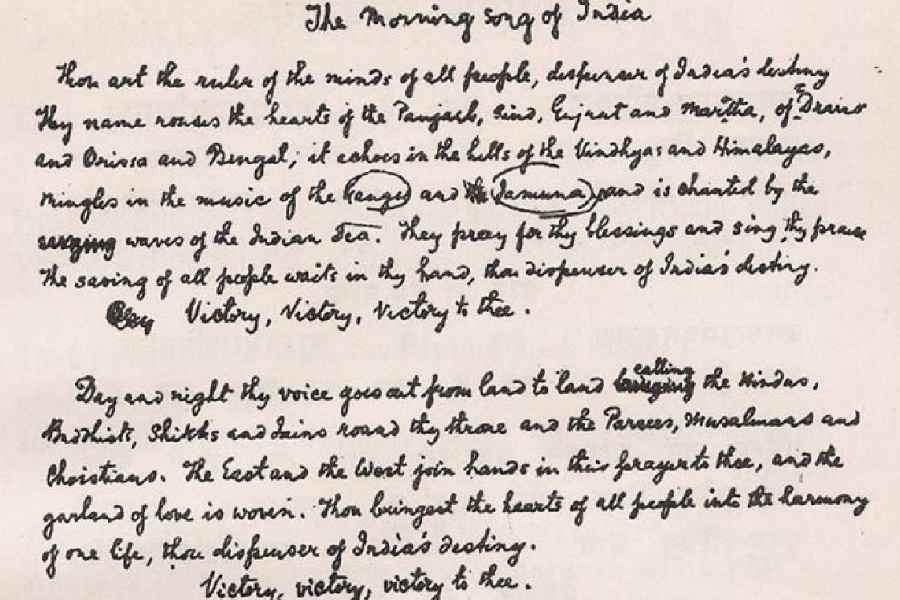 The Morning Song of India
Thou art the ruler of the minds of all people, dispenser of India's destiny
Thy name rouses the hearts of the Panjab, Sind, Gujrat and Maratha, of Dravid
and Orissa and Bengal; it echoes in the hills of the Vindhyas and Himalayas,
mingles in the music of the Ganges and the Jamuna and is chanted by the
waves of the Indian Sea. They pray for thy blessings and sing thy praise
The saving of all people waits in thy hand, thou dispenser of India's destiny.
Victory, Victory, Victory to thee.
Day and night thy voice goes out from land to land calling the Hindus,
Buddhists, Shikhs and Jains round thy throne and the Parsees, Musalmans and
Christians. The East and the West join hands in their prayer to thee, and the
garland of love is woven. Thou bringest the hearts of all people into the harmony
of one life, thou dispenser of India's destiny.
Victory, victory, victory to thee.